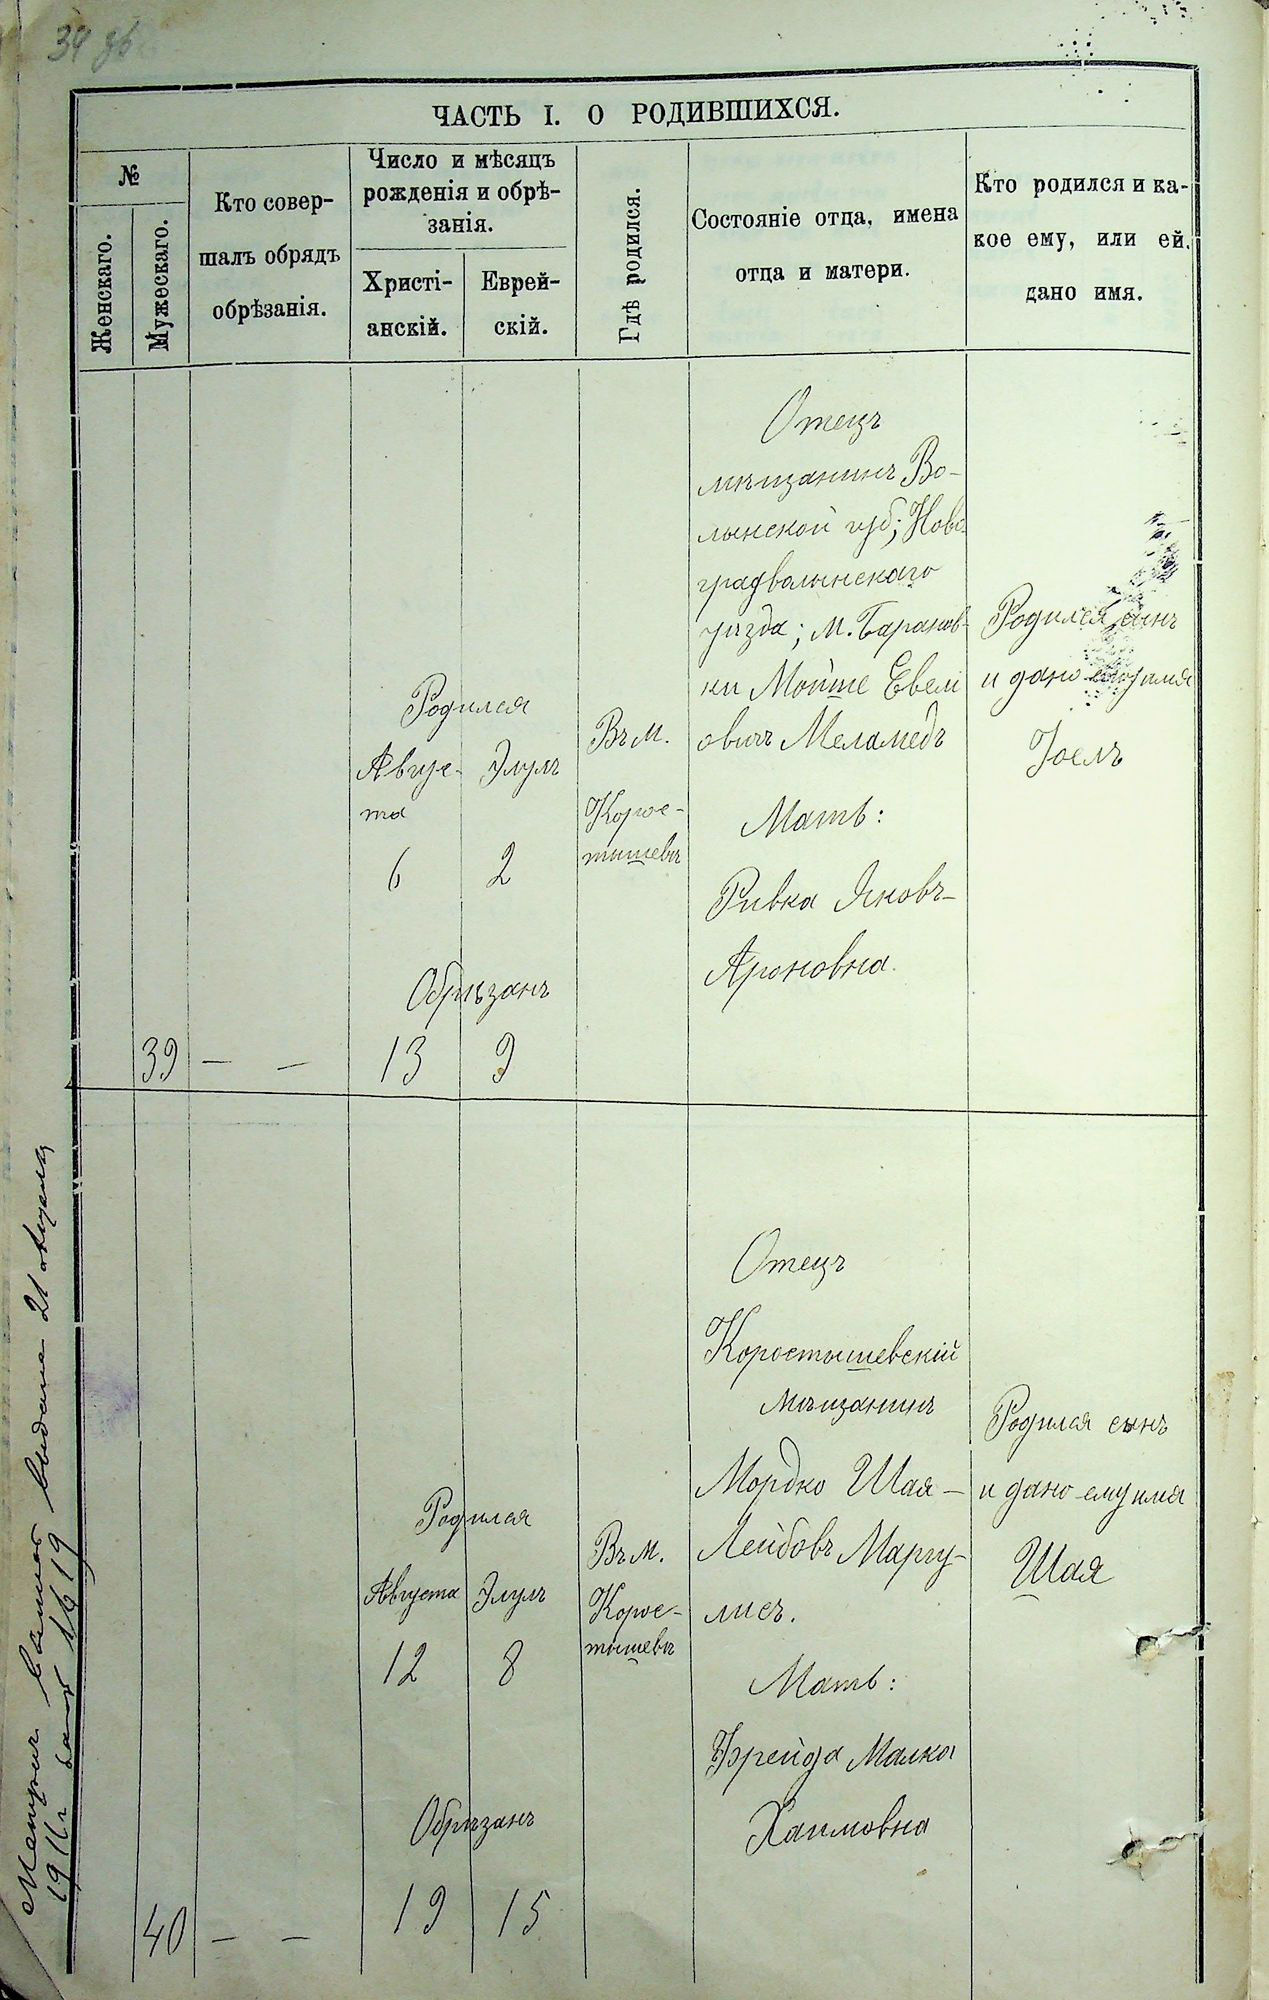 34 об
ЧАСТЬ I. О РОДИВШИХСЯ.
№
Женскаго.
Мужескаго.
Кто совер-
шалъ обрядъ
обрѣзанія.
Число и мѣсяцъ
рожденія и обрѣ-
занія.
Христі-
анскій.
Еврей-
скій.
Гдѣ родился.
Состояніе отца, имена
отца и матери.
Кто родился и ка-
кое ему, или ей,
дано имя.
39
— —
Родился
Авгус-
та
6
Элулъ
2
Обрѣзанъ
13
9
Въ м.
Корос-
тышевѣ
Отецъ
мѣщанинъ Во-
лынской губ; Ново-
градволынскаго
уѣзда; м. Баранов-
ки Мойше Евелі
овичъ Меламедъ
Мать:
Ривка Яковъ-
Ароновна.
Родился сынъ
и дано ему имя
Іоелъ
40
— —
Родился
Августа
12
Элулъ
8
Обрѣзанъ
19
15
Въ м.
Корос-
тышевѣ
Отецъ
Коростышевскій
мѣщанинъ
Мордко Шая-
Лейбовъ Маргу-
лисъ.
Мать:
Фрейда Малка
Хаимовна
Родился сынъ
и дано ему имя
Шая
выдана 21
1911 г за № 1619